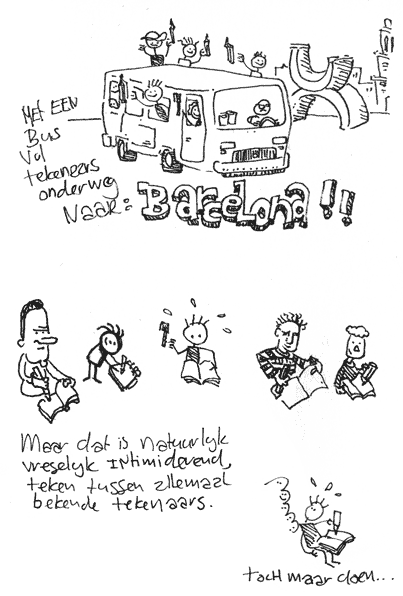 MET EEN
Bus
Vol
tekenaars
onderweg
Naar:
Barcelona!!
Maar dat is natuurlyk
vreselyk intimiderend,
teken tussen allemaal
bekende tekenaars.
toch maar doen...